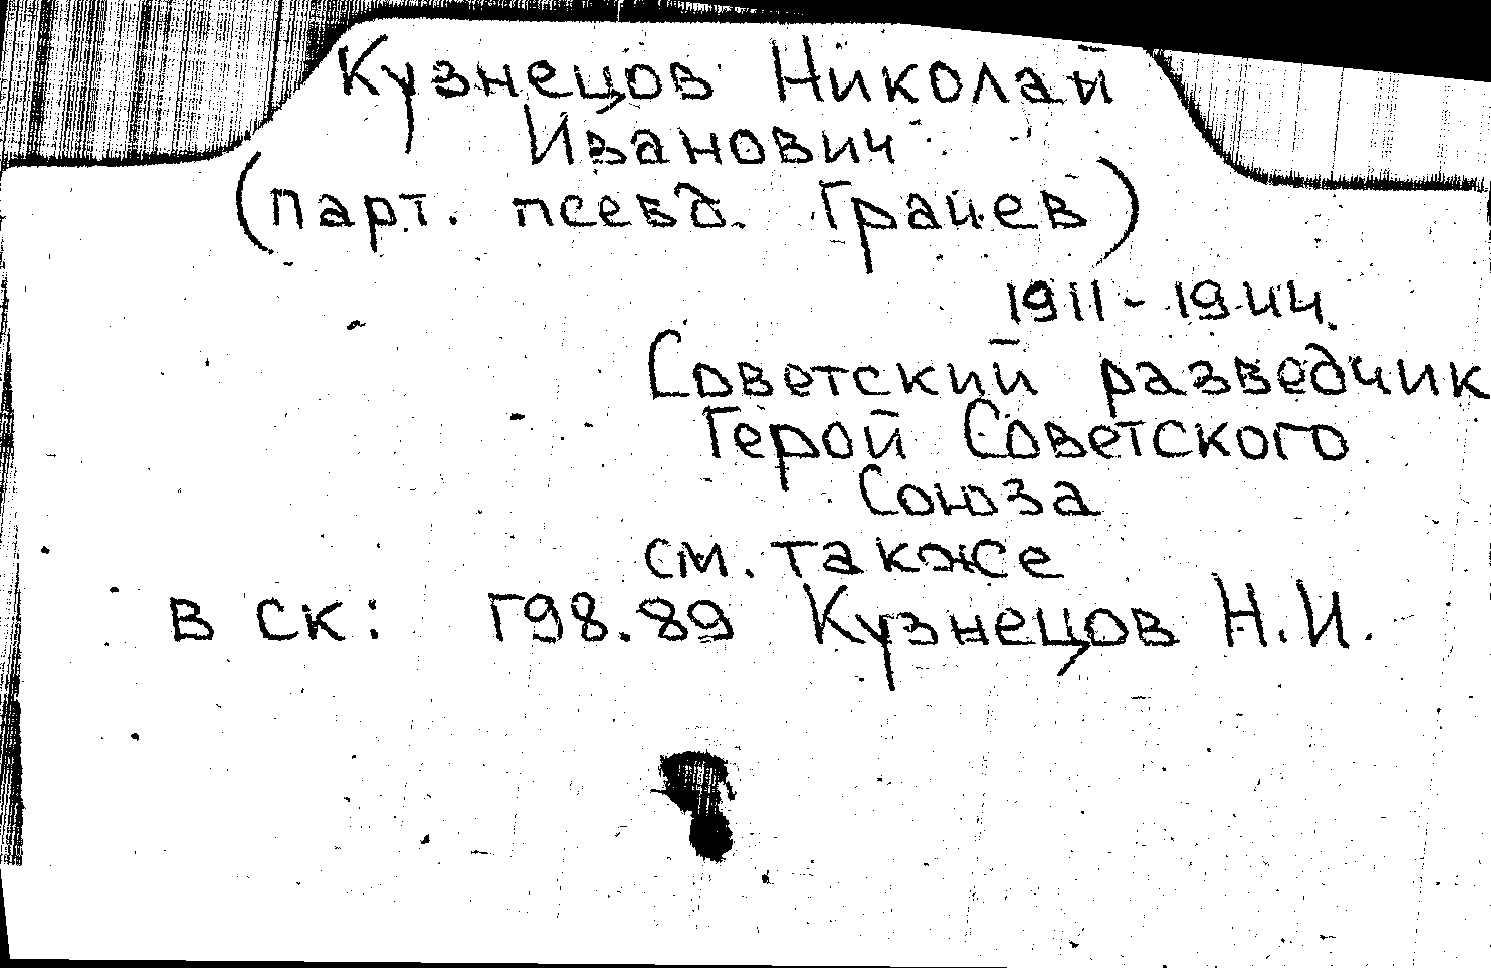 Кузнецов Николай
Иванович
(парт. псевд. Грачев)
1911-1944
Советский разведчик
Герой Советского
Союза
см. также
В СК: Г98.89 Кузнецов Н.И.